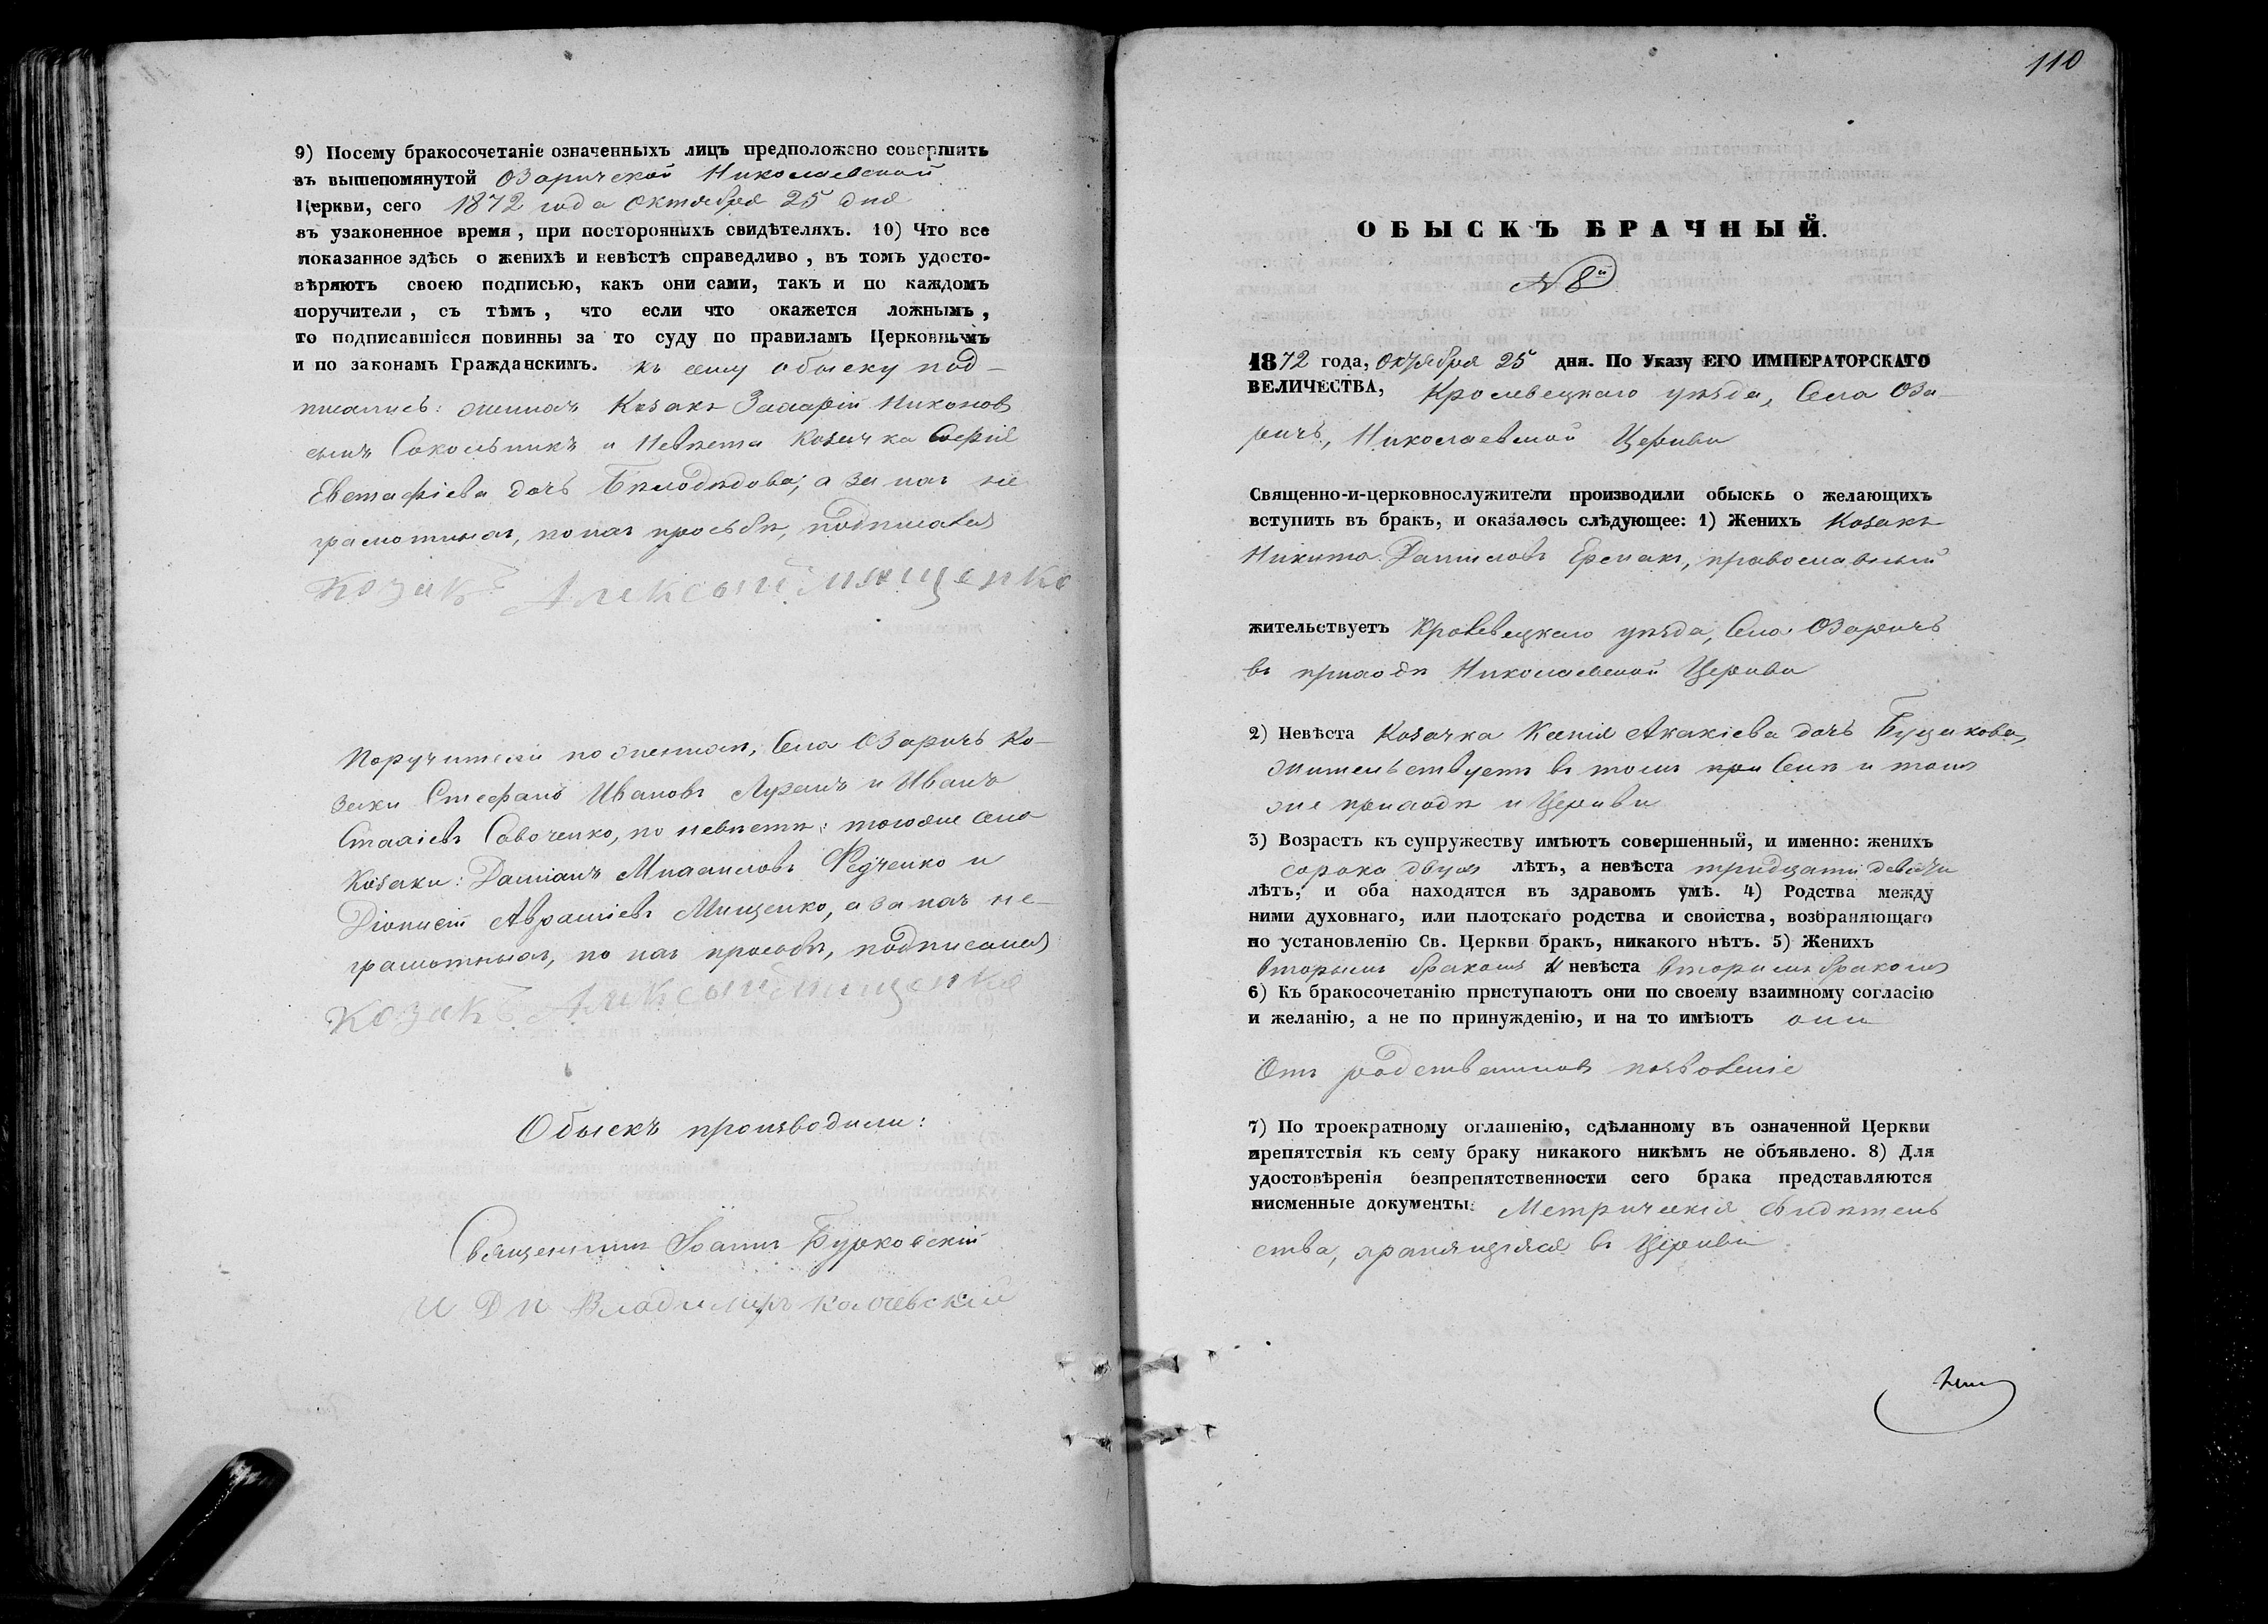 9) Посему бракосочетаніе означенныхъ лицъ предположено совершить
въ вышепомянутой Озаричской Николаевской
Церкви, сего 1872 года Октября 25 дня
въ узаконенное время, при постороннихъ свидѣтеляхъ. 10) Что все
показанное здѣсь о женихѣ и невѣстѣ справедливо, въ томъ удосто-
вѣряютъ своею подписью, какъ они сами, такъ и по каждомъ
поручители, съ тѣмъ, что если что окажется ложнымъ,
то подписавшіеся повинны за то суду по правиламъ Церковнымъ
и по законамъ Гражданскимъ. Къ сему обыску под-
писались: женихъ Козакъ Захарій Никоновъ
сынъ Сокольникъ и Невѣста Козачка Софія
Евстафіева дочь Бѣлодѣдова; а за нихъ не
грамотныхъ, по ихъ просьбѣ, подписался
козакъ Алексый мищенко
Поручители по женихѣ, Села Озаричъ Ко-
заки Стефанъ Ивановъ и Иванъ
Савченко, по невѣстѣ: тогоже Села
Козаки: Даміанъ Михаиловъ Федченко и
Діонисій Авраміевъ Мищенко, а за нихъ не-
грамотныхъ, по ихъ просьбѣ, подписался
козакъ Алексый мищенко
Обыскъ производили:
Священникъ Іоаннъ Бурковскій
И Д П Владимиръ
110
ОБЫСКЪ БРАЧНЫЙ.
№ 8й
1872 года, Октября 25 дня. По Указу ЕГО ИМПЕРАТОРСКАГО
ВЕЛИЧЕСТВА, Кролевецкаго уѣзда, Села Оза-
ричъ, Николаевской Церкви
Священно-и-церковнослужители производили обыскъ о желающихъ
вступить въ бракъ, и оказалось слѣдующее: 1) Женихъ Козакъ
Никита Даниловъ Ермакъ, православный
жительствуетъ Кролевецкаго уѣзда, Села Озаричъ
въ приходѣ Николаевской Церкви
2) Невѣста Козачка Ксенія Акакіева дочь Буцакова,
жительствуетъ въ томъ при Селѣ и томъ
же приходѣ и Церкви
3) Возрастъ къ супружеству имѣютъ совершенный, и именно: женихъ
сорока двухъ лѣтъ, а невѣста тридцати девяти
лѣтъ, и оба находятся въ здравомъ умѣ. 4) Родства между
ними духовнаго, или плотскаго родства и свойства, возбраняющаго
по установленію Св. Церкви бракъ, никакого нѣтъ. 5) Женихъ
вторымъ бракомъ И невѣста вторымъ бракомъ
6) Къ бракосочетанію приступаютъ они по своему взаимному согласію
и желанію, а не по принужденію, и на то имѣютъ они
Отъ родственниковъ позволеніе
7) По троекратному оглашенію, сдѣланному въ означенной Церкви
препятствія къ сему браку никакого никѣмъ не объявлено. 8) Для
удостовѣренія безпрепятственности сего брака представляются
писменные документы: Метрическія свидѣтель
ства, хранящіяся въ Церкви